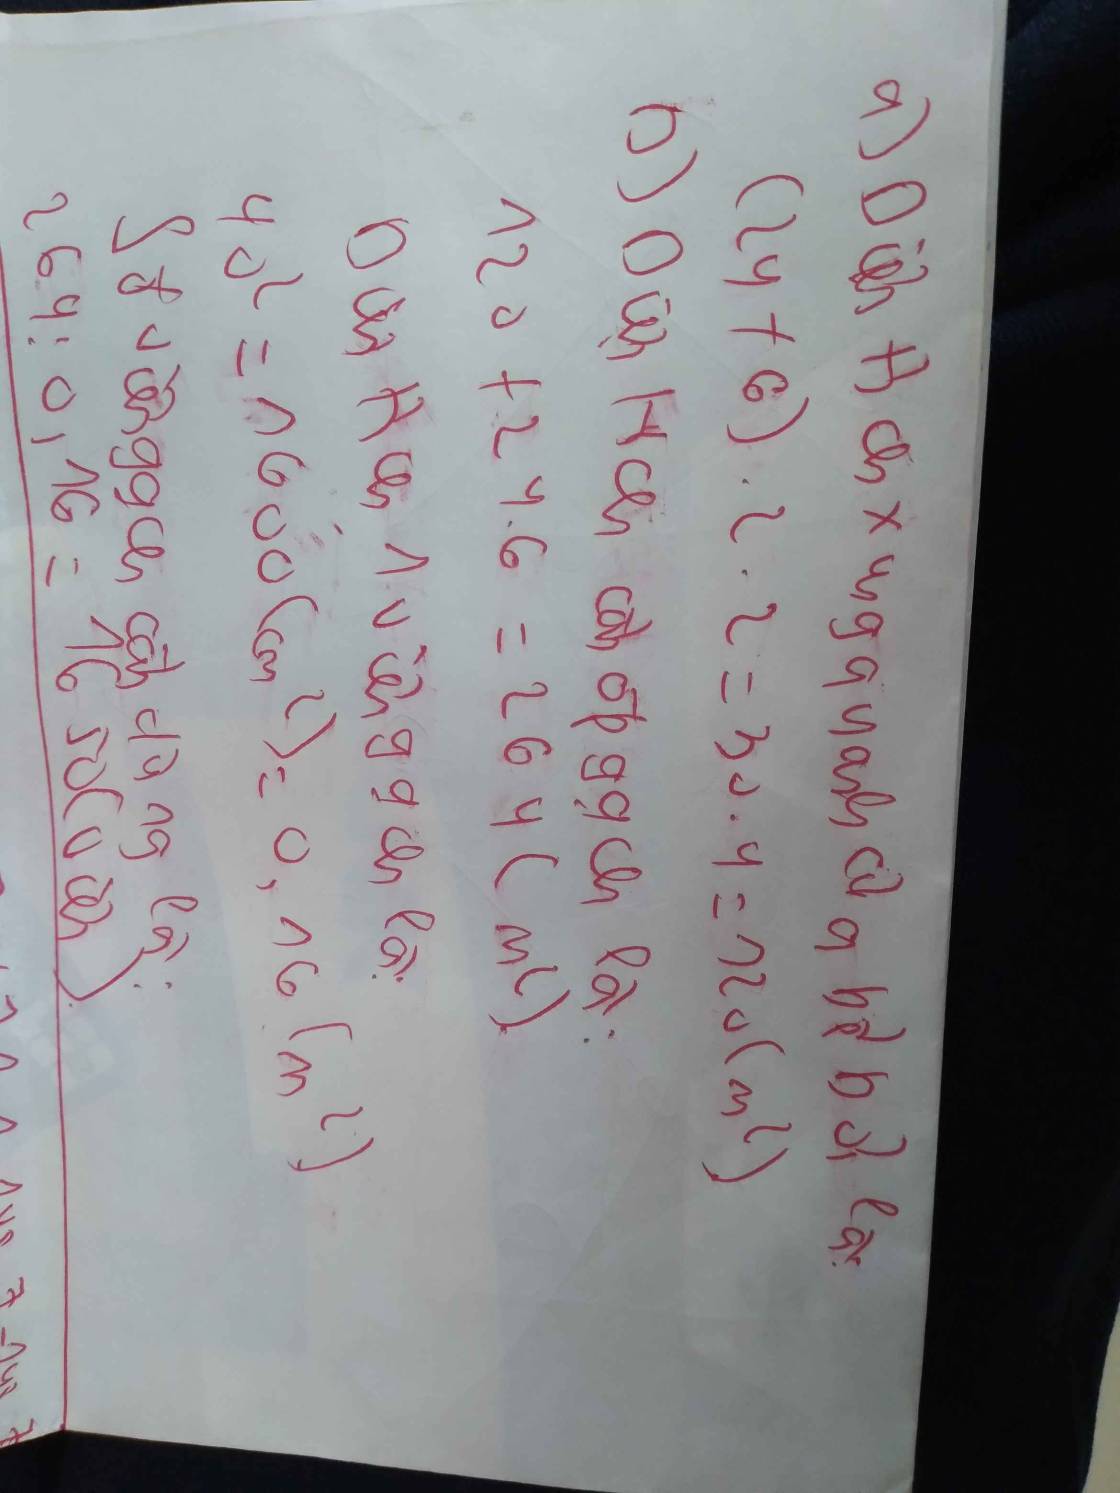 a) Diện tích xung quanh của bể bơi là:
(24 + 6) . 2 . 2 = 30 . 4 = 120 (m²)
b) Diện tích cần ốp gạch là:
120 + 24.6 = 264 (m²)
Diện tích 1 viên gạch là:
40² = 1600 (cm²) = 0,16 (m²)
Số viên gạch cần dùng là:
264 : 0,16 = 1650 (viên)